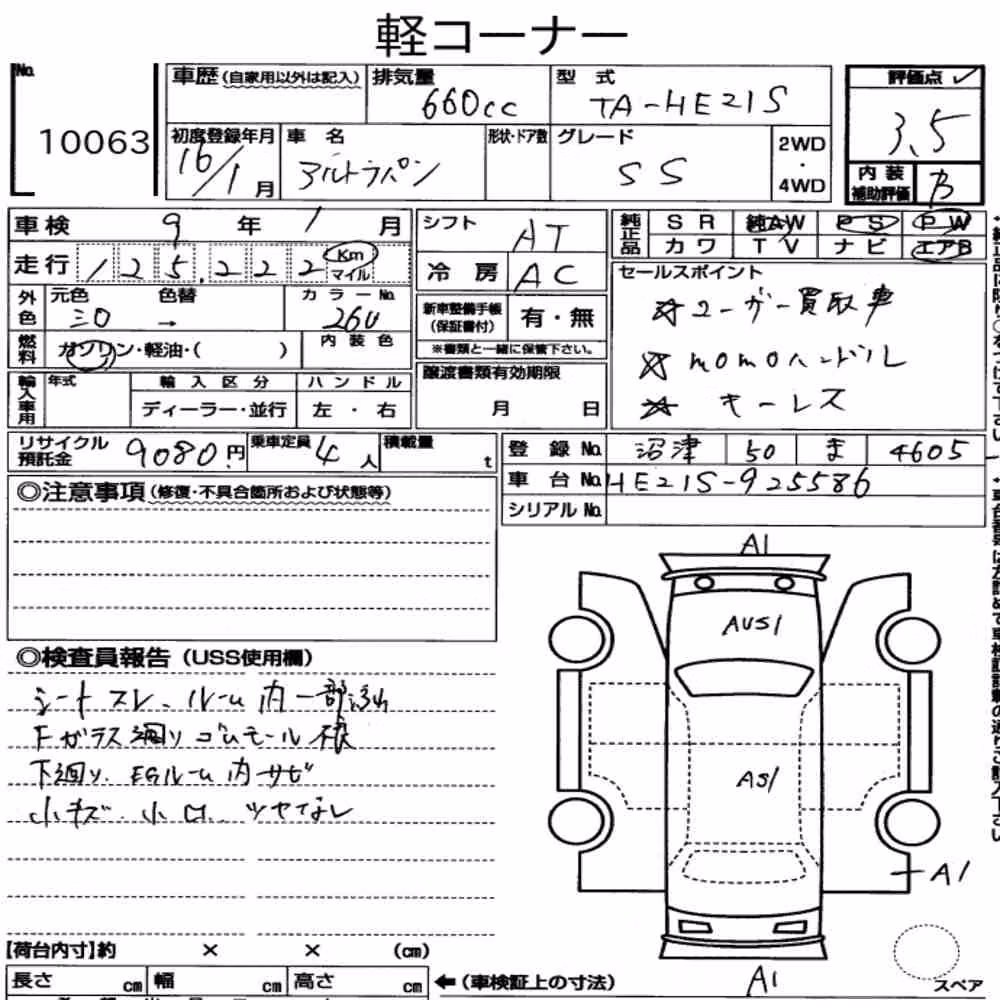 軽コーナー
No. 10063
車歴 (自家用以外は記入)
排気量 660cc
型式 TA-HE21S
評価点 ✓ 3.5
初度登録年月 16/1月
車名 アルトラパン
形状・ドア数
グレード SS
2WD・4WD
内装補助評価 B
車検 9年 1月
シフト AT
純正品 SR 純AW PS PW
カワ TV ナビ エアB
走行 125,222 Km マイル
冷房 AC
セールスポイント
☆ユーザー買取車
☆momoハンドル
☆キーレス
外色 元色 シロ 色替 →
カラーNo. 26U
新車整備手帳(保証書付) 有・無
※書類と一緒に保管下さい。
燃料 ガソリン・軽油・( )
内装色
譲渡書類有効期限
月 日
輸入車用 年式 輸入区分 ハンドル
ディーラー・並行 左・右
リサイクル預託金 9080円
乗車定員 4人
積載量 t
登録No. 沼津 50 ま 4605
車台No. HE21S-925586
シリアルNo.
◎注意事項 (修復・不具合箇所および状態等)
◎検査員報告 (USS使用欄)
シートスレ、ルーム内一部汚れ
Fガラス廻りゴムモール様
下廻り、EGルーム内サビ
小キズ、小凹、ツヤなし
A1
AUS1
AS1
A1
A1
スペア
【荷台内寸】約 × × (cm)
長さ cm 幅 cm 高さ cm
←(車検証上の寸法)